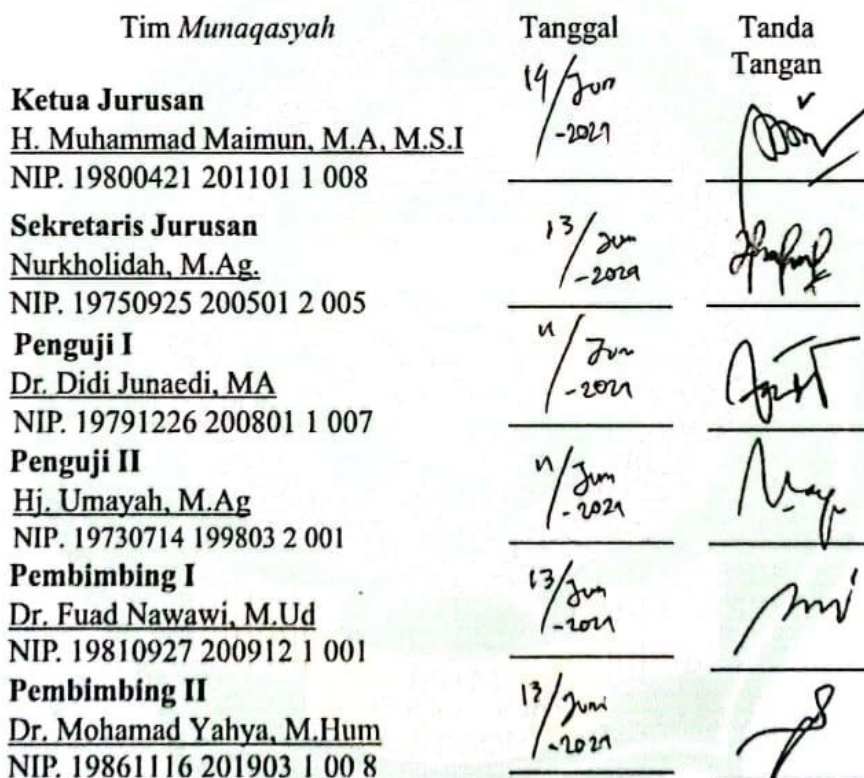 Tim Munaqasyah Tanggal Tanda Tangan
Ketua Jurusan
H. Muhammad Maimun, M.A, M.S.I
NIP. 19800421 201101 1 008
14/Jun
Sekretaris Jurusan
Nurkholidah, M.Ag.
NIP. 19750925 200501 2 005
13/Jun
Penguji I
Dr. Didi Junaedi, MA
NIP. 19791226 200801 1 007
Jun
Penguji II
Hj. Umayah, M.Ag
NIP. 19730714 199803 2 001
Jun
Pembimbing I
Dr. Fuad Nawawi, M.Ud
NIP. 19810927 200912 1 001
13/Jun
Pembimbing II
Dr. Mohamad Yahya, M.Hum
NIP. 19861116 201903 1 00 8
13/Juni